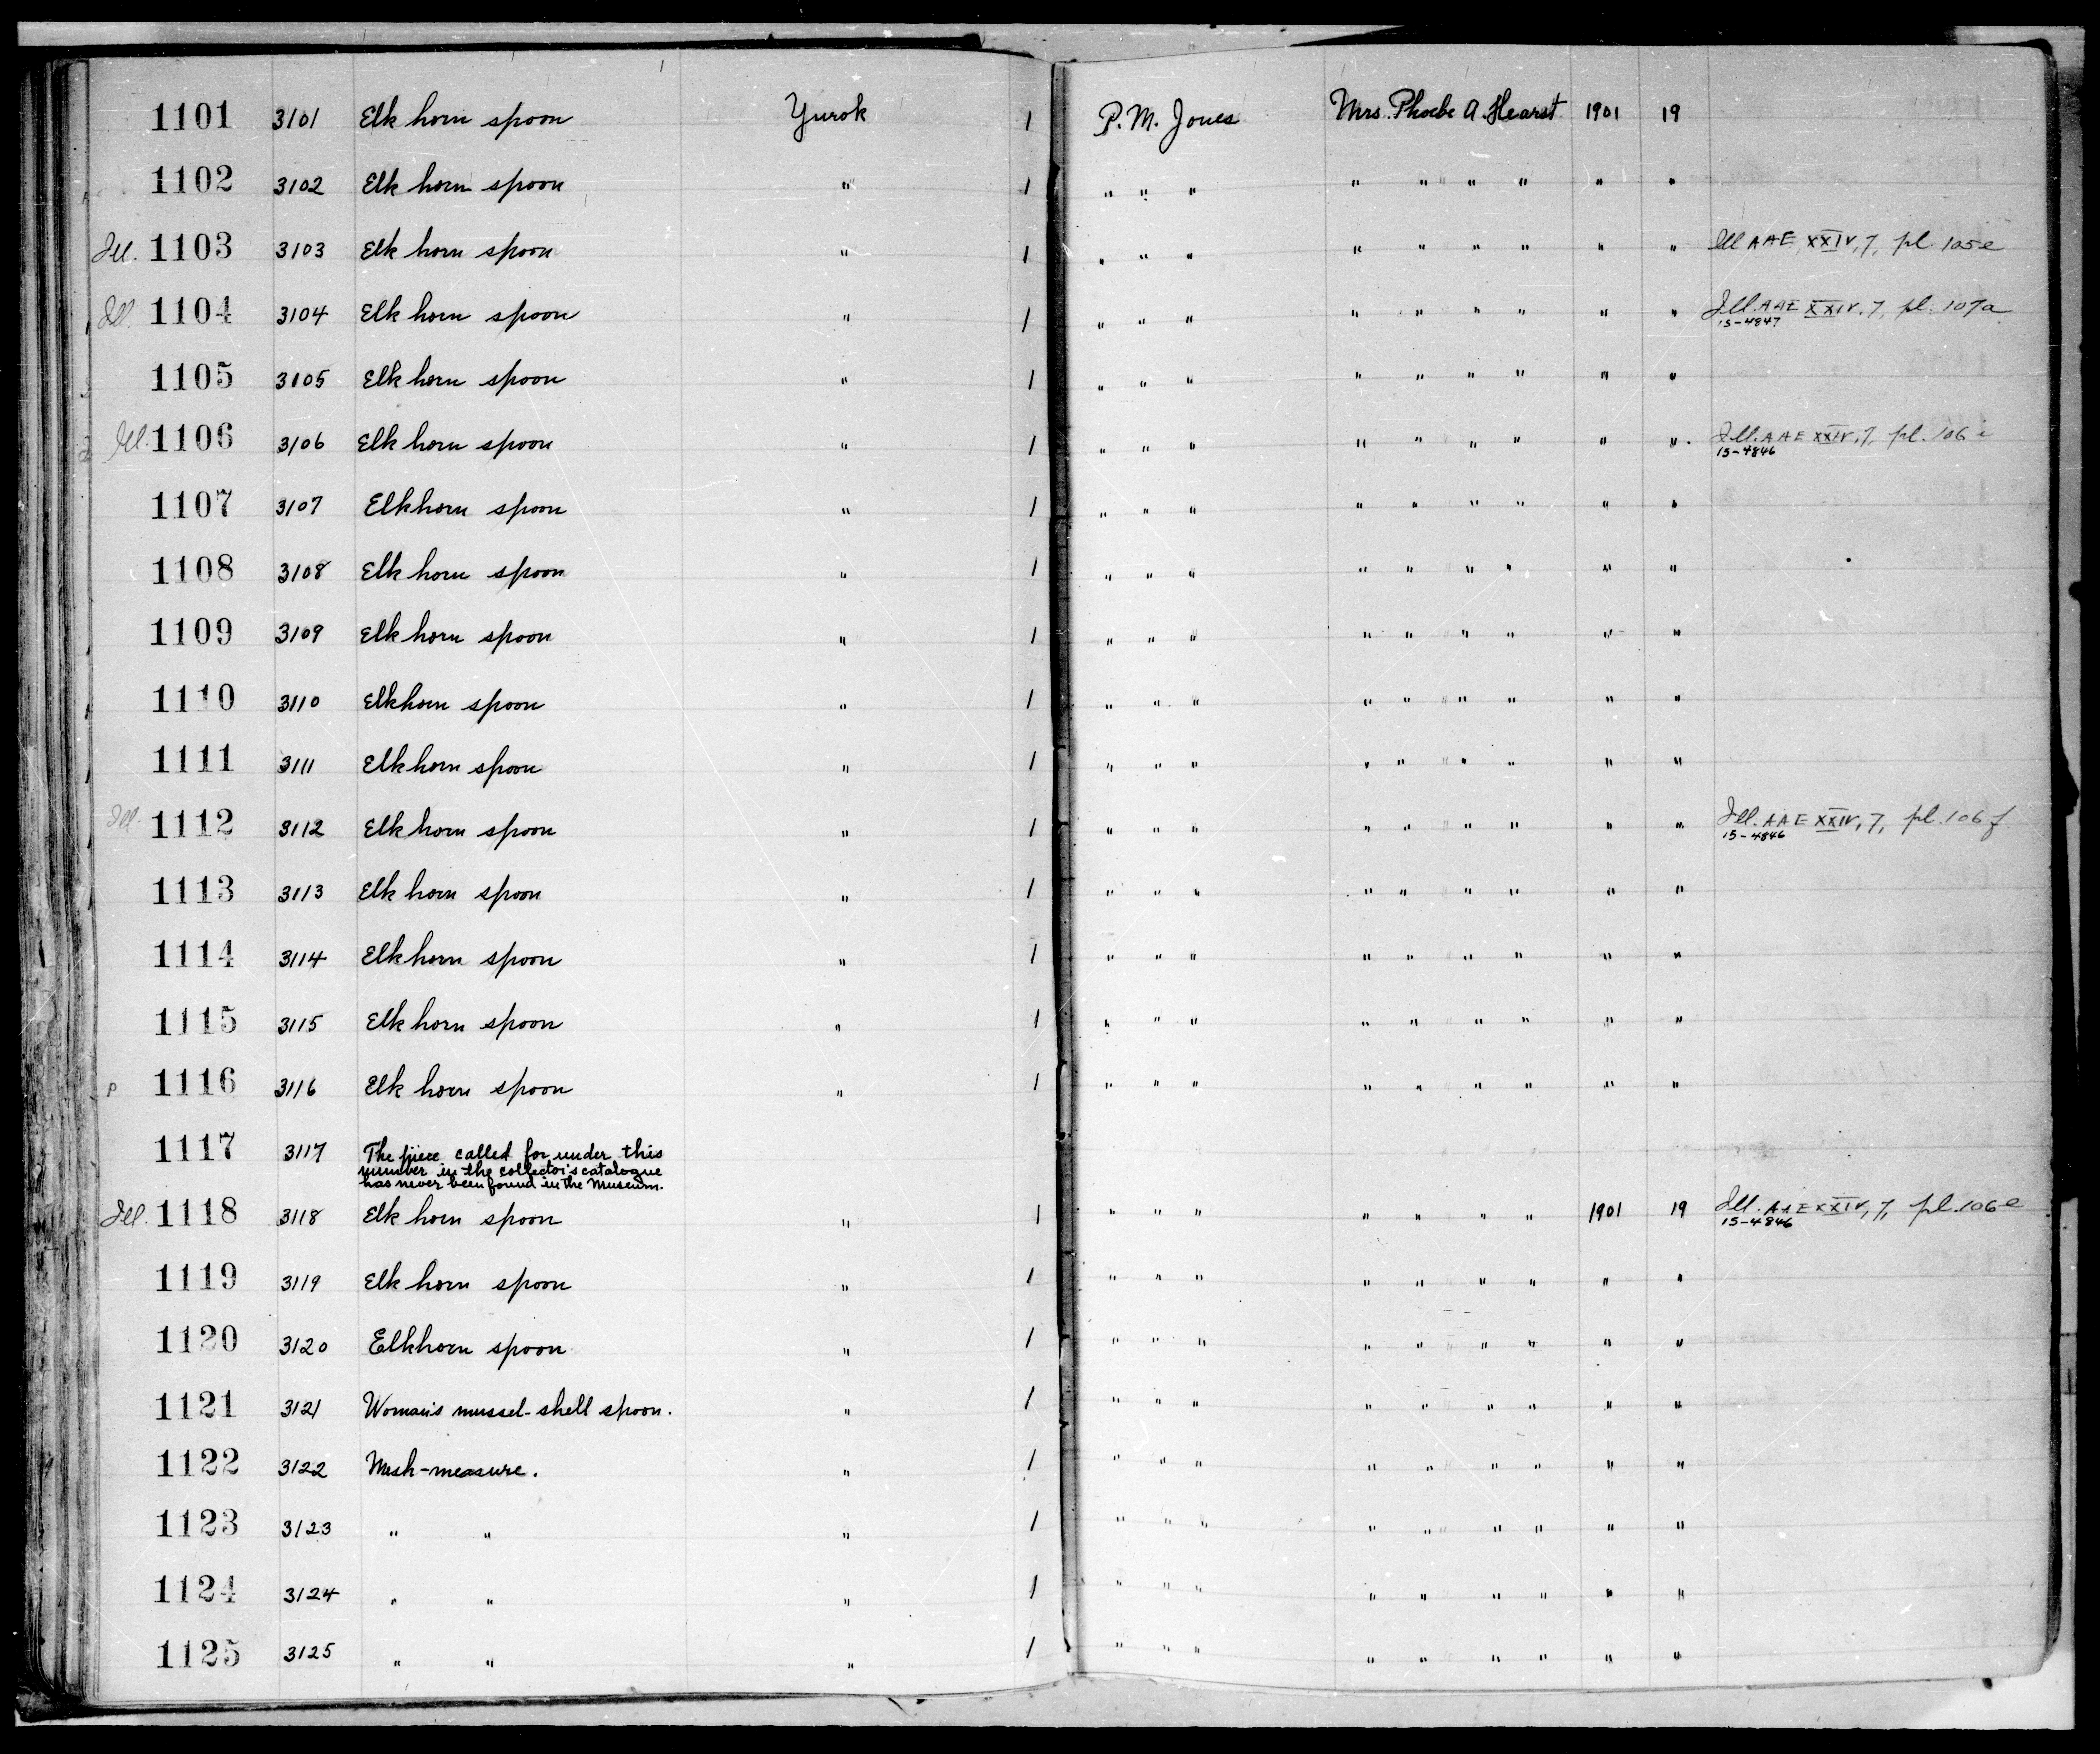 1101 3101 Elk horn spoon Yurok 1 P. M. Jones Mrs. Phoebe A. Hearst 1901 19
1102 3102 Elk horn spoon " 1 " " " " " " " " "
Ill. 1103 3103 Elk horn spoon " 1 " " " " " " " " " Ill AAE, XXIV, 7, pl. 105e
Ill. 1104 3104 Elk horn spoon " 1 " " " " " " " " " Ill. AAE XXIV, 7, pl. 107a
15-4847
1105 3105 Elk horn spoon " 1 " " " " " " " " "
Ill. 1106 3106 Elk horn spoon " 1 " " " " " " " " " Ill. AAE XXIV, 7, pl. 106 i
15-4846
1107 3107 Elkhorn spoon " 1 " " " " " " " " "
1108 3108 Elk horn spoon " 1 " " " " " " " " "
1109 3109 Elk horn spoon " 1 " " " " " " " " "
1110 3110 Elkhorn spoon " 1 " " " " " " " " "
1111 3111 Elk horn spoon " 1 " " " " " " " " "
Ill. 1112 3112 Elk horn spoon " 1 " " " " " " " " " Ill. AAE XXIV, 7, pl. 106 f
15-4846
1113 3113 Elk horn spoon " 1 " " " " " " " " "
1114 3114 Elk horn spoon " 1 " " " " " " " " "
1115 3115 Elk horn spoon " 1 " " " " " " " " "
P 1116 3116 Elk horn spoon " 1 " " " " " " " " "
1117 3117 The piece called for under this
number in the collector's catalogue
has never been found in the Museum.
Ill. 1118 3118 Elk horn spoon " 1 " " " " " " " 1901 19 Ill. AAE XXIV, 7, pl. 106e
15-4846
1119 3119 Elk horn spoon " 1 " " " " " " " " "
1120 3120 Elkhorn spoon " 1 " " " " " " " " "
1121 3121 Woman's mussel-shell spoon. " 1 " " " " " " " " "
1122 3122 Mesh-measure. " 1 " " " " " " " " "
1123 3123 " " " 1 " " " " " " " " "
1124 3124 " " " 1 " " " " " " " " "
1125 3125 " " " 1 " " " " " " " " "